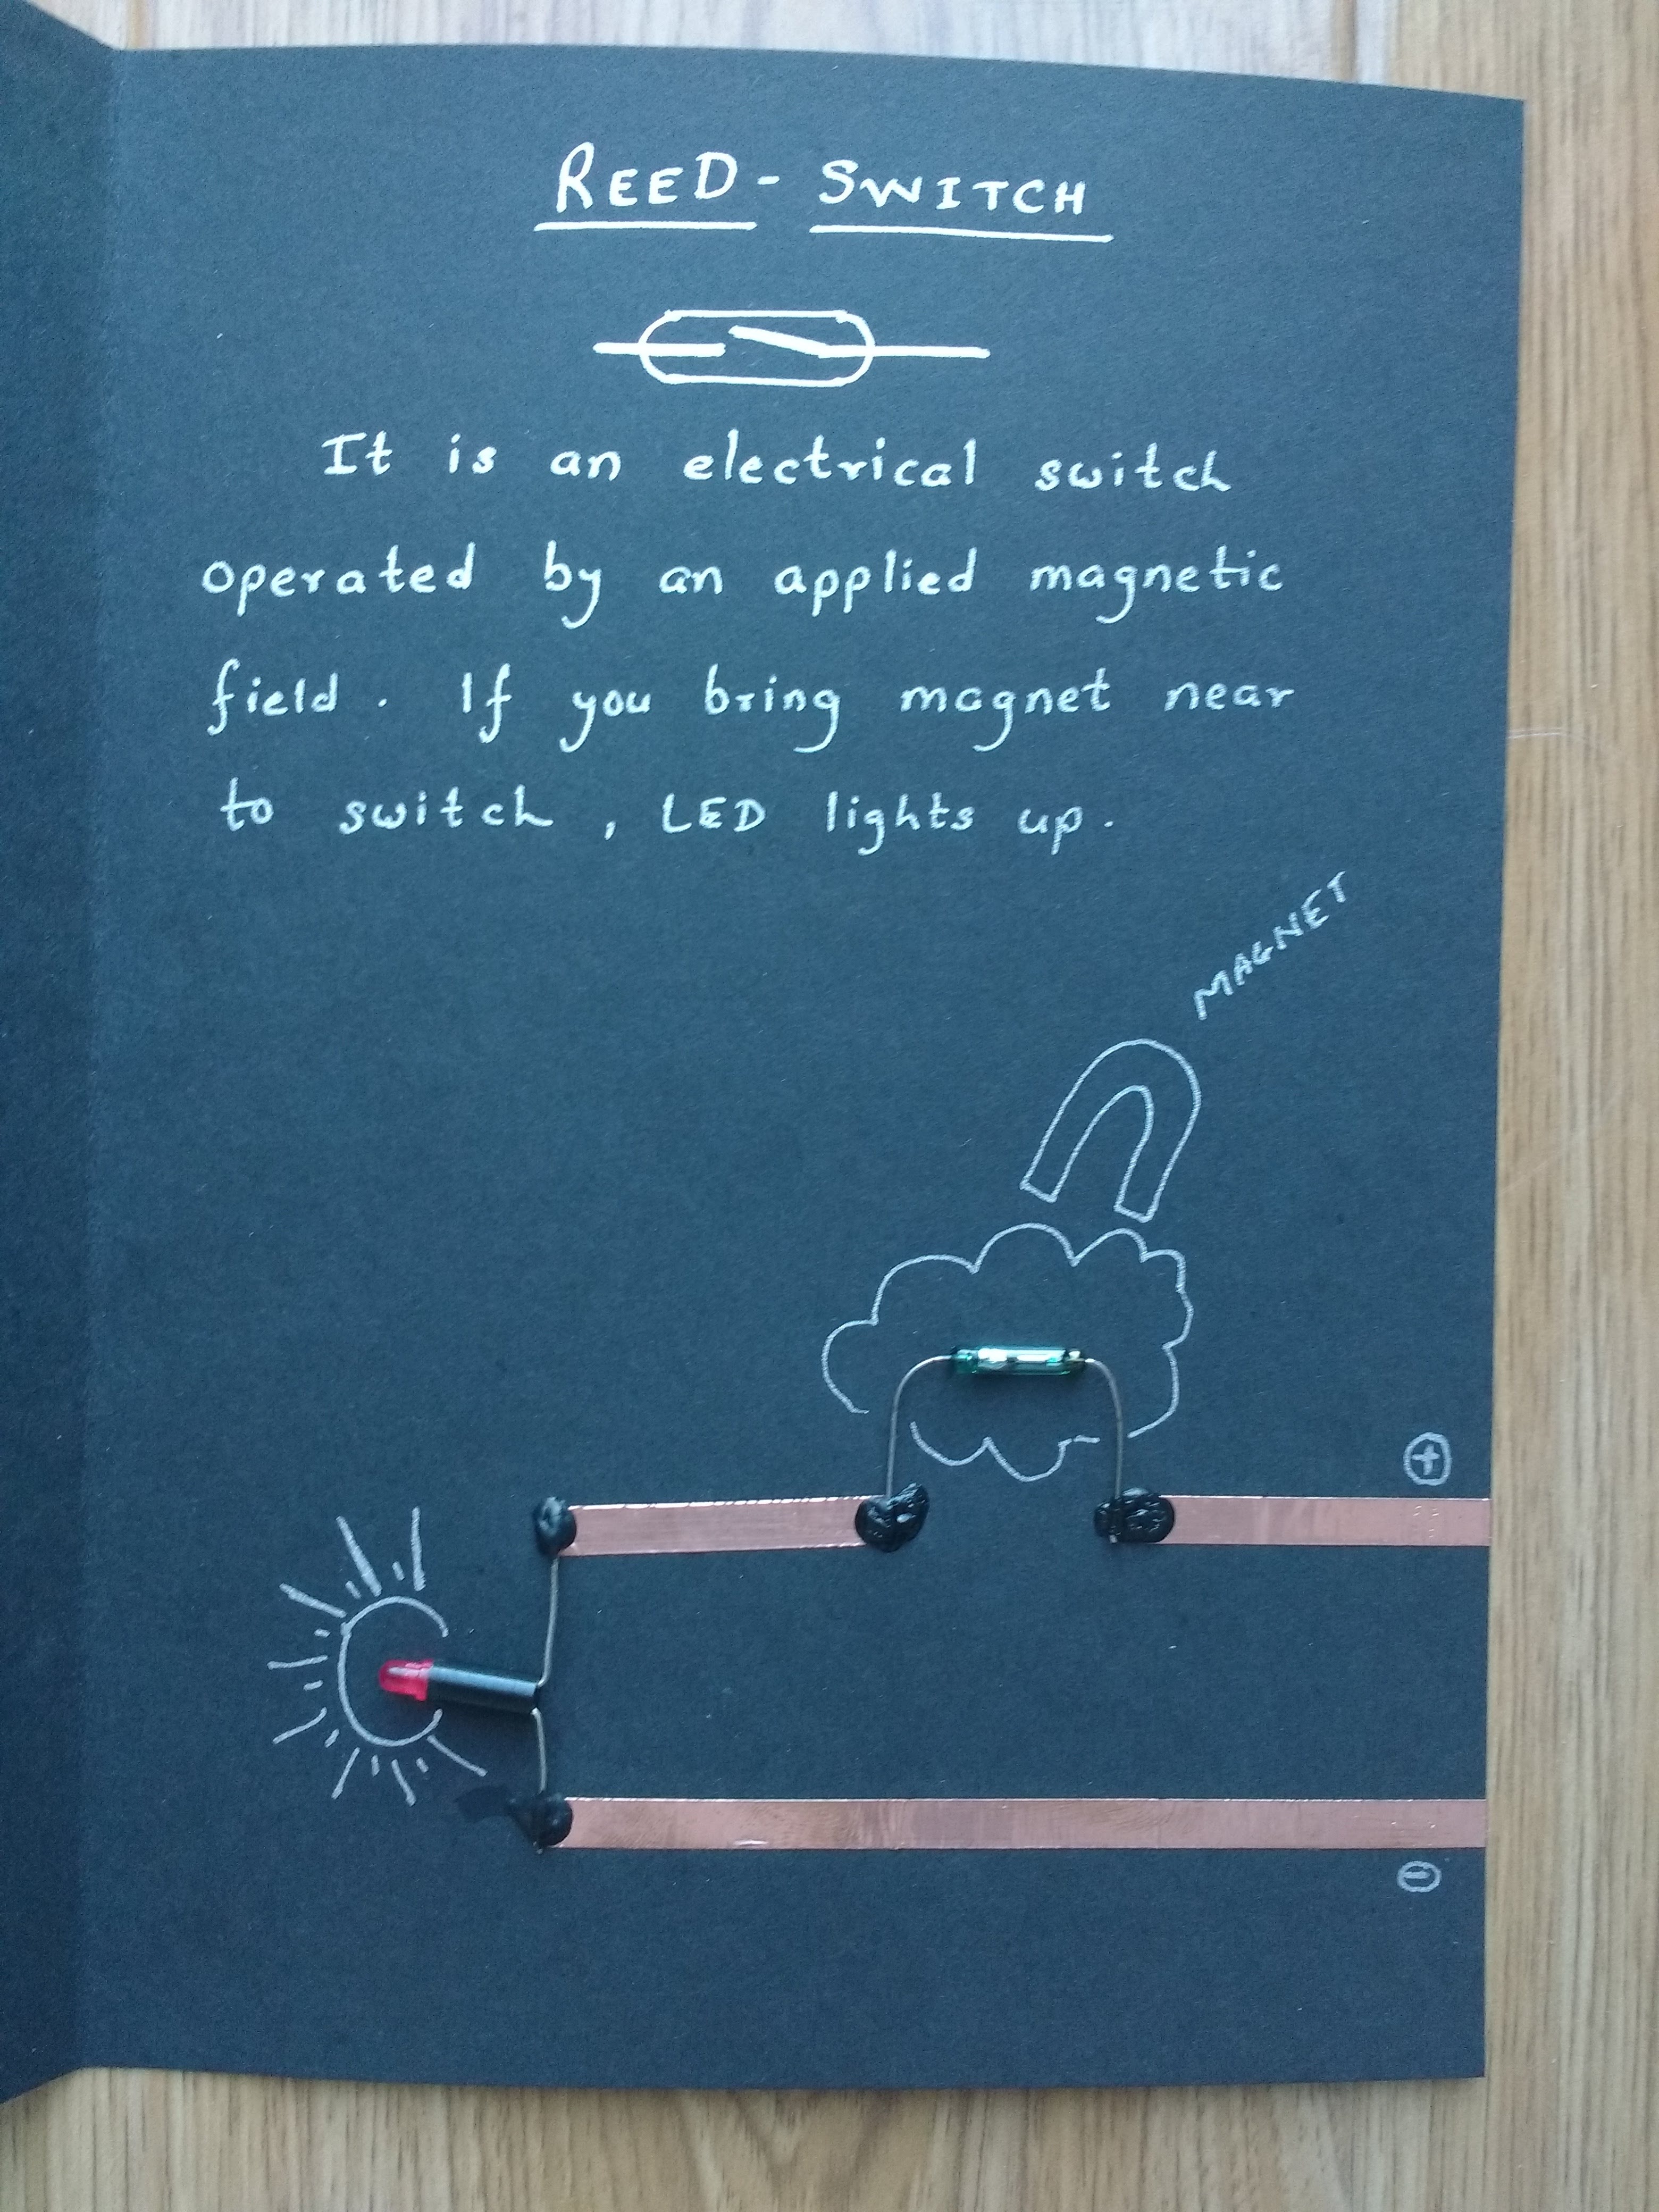 REED - SWITCH
It is an electrical switch
operated by an applied magnetic
field. If you bring magnet near
to switch, LED lights up.
MAGNET
+
-